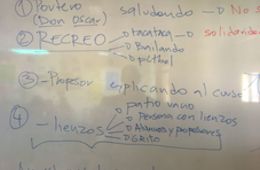 ① Portero saludando → No
(Don Oscar)
② RECREO → tacataca → solidando
→ Bailando
→ pichul
③ - Profesor explicando al curso
④ - lienzos → patio vacio
→ Persona con lienzos
→ Alumnos y profesores
→ GRITO